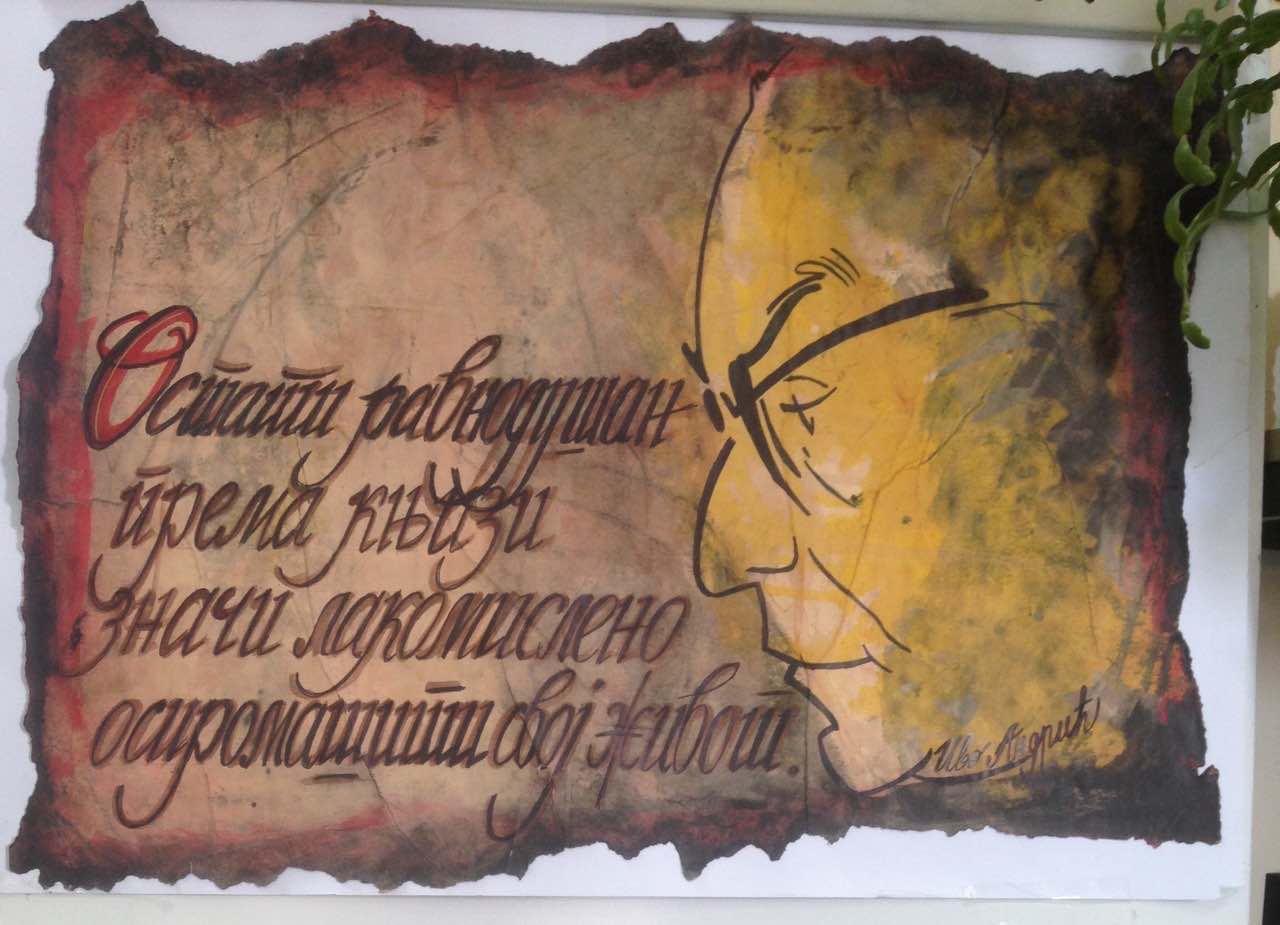 Остати равнодушан
према књизи
значи лакомислено
осиромашити свој живот.
Иво Андрић